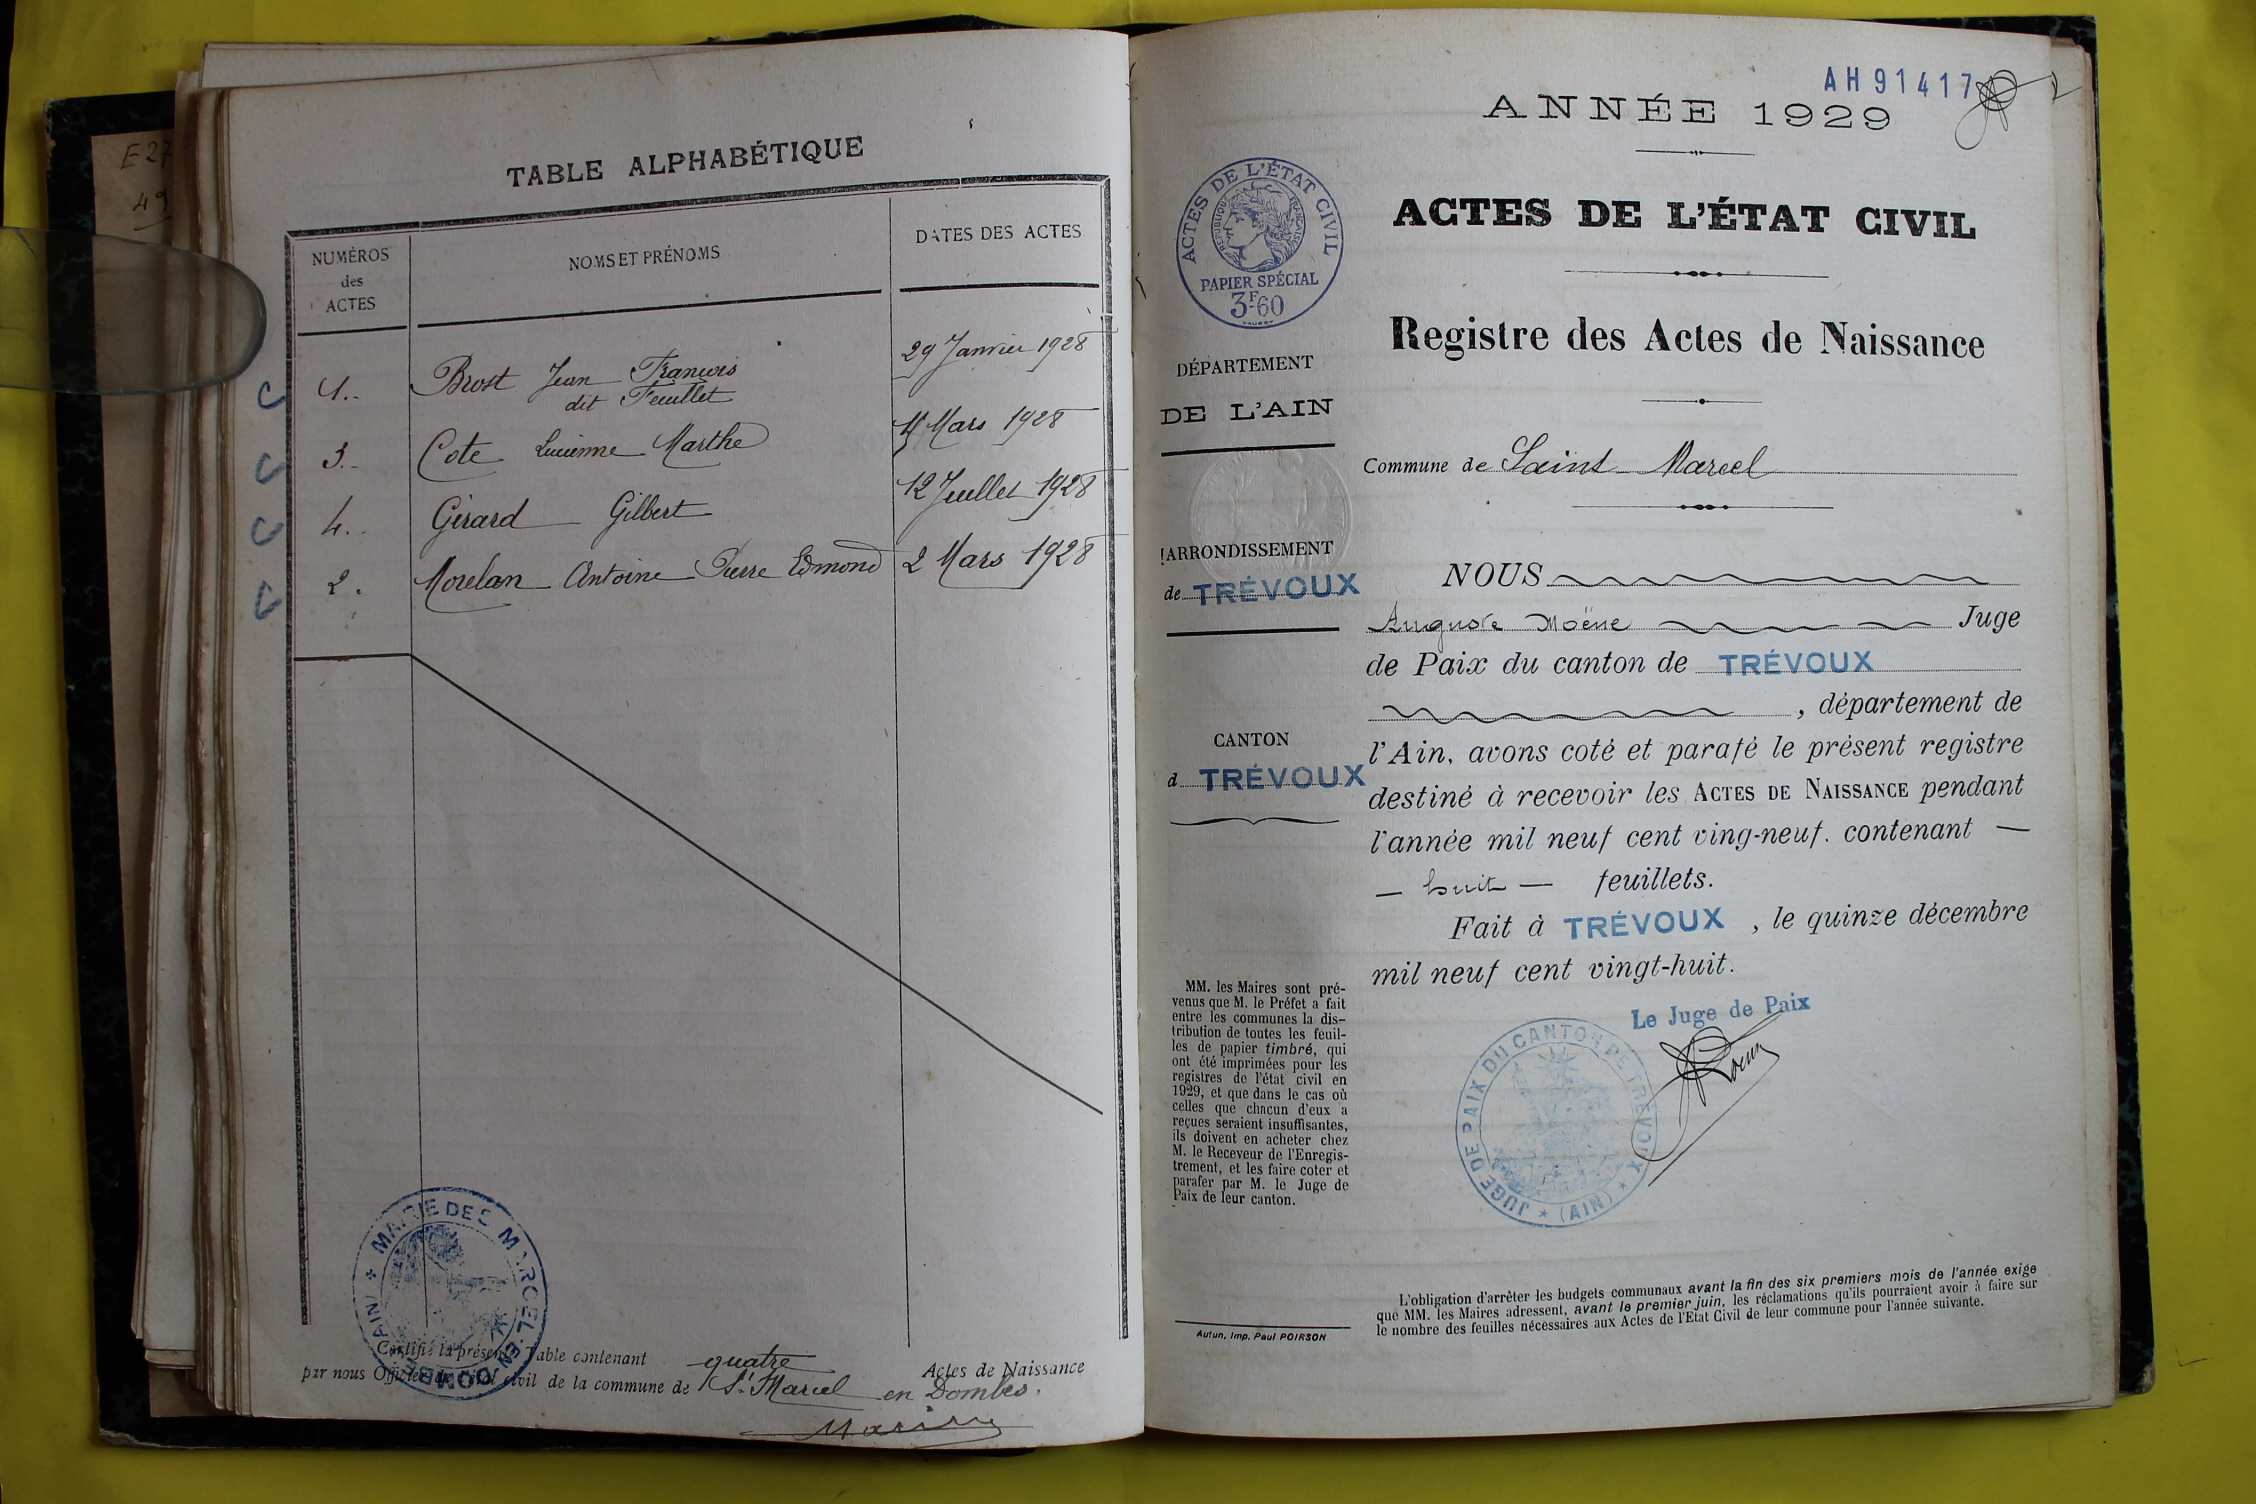 E 27
49
TABLE ALPHABÉTIQUE
NUMÉROS
des
ACTES
NOMS ET PRÉNOMS
DATES DES ACTES
1.. Brost Jean François 29 Janvier 1928
dit Feuillet
3.. Cote Lucienne Marthe Mars 1928
4.. Gérard Gilbert 12 Juillet 1928
2. Morelan Antoine Pierre Edmond 2 Mars 1928
MAIRIE DE S MARCEL-EN-DOMBES (AIN)
Certifié la présente Table contenant quatre Actes de Naissance
par nous Officier de l'état civil de la commune de St Marcel en Dombes.
AH91417
ANNÉE 1929
ACTES DE L'ÉTAT CIVIL
RÉPUBLIQUE FRANÇAISE
PAPIER SPÉCIAL
3F60
ACTES DE L'ÉTAT CIVIL
Registre des Actes de Naissance
DÉPARTEMENT
DE L'AIN
Commune de Saint Marcel
ARRONDISSEMENT
de TRÉVOUX
CANTON
d TRÉVOUX
NOUS
Auguste Moëne Juge
de Paix du canton de TRÉVOUX
, département de
l'Ain, avons coté et parafé le présent registre
destiné à recevoir les ACTES DE NAISSANCE pendant
l'année mil neuf cent ving-neuf. contenant —
— huit — feuillets.
Fait à TRÉVOUX , le quinze décembre
mil neuf cent vingt-huit.
Le Juge de Paix
JUGE DE PAIX DU CANTON DE TRÉVOUX
(AIN)
MM. les Maires sont pré-
venus que M. le Préfet a fait
entre les communes la dis-
tribution de toutes les feuil-
les de papier timbré, qui
ont été imprimées pour les
registres de l'état civil en
1929, et que dans le cas où
celles que chacun d'eux a
reçues seraient insuffisantes,
ils doivent en acheter chez
M. le Receveur de l'Enregis-
trement, et les faire coter et
parafer par M. le Juge de
Paix de leur canton.
Autun, Imp. Paul POIRSON
L'obligation d'arrêter les budgets communaux avant la fin des six premiers mois de l'année exige
que MM. les Maires adressent, avant le premier juin, les réclamations qu'ils pourraient avoir à faire sur
le nombre des feuilles nécessaires aux Actes de l'Etat Civil de leur commune pour l'année suivante.